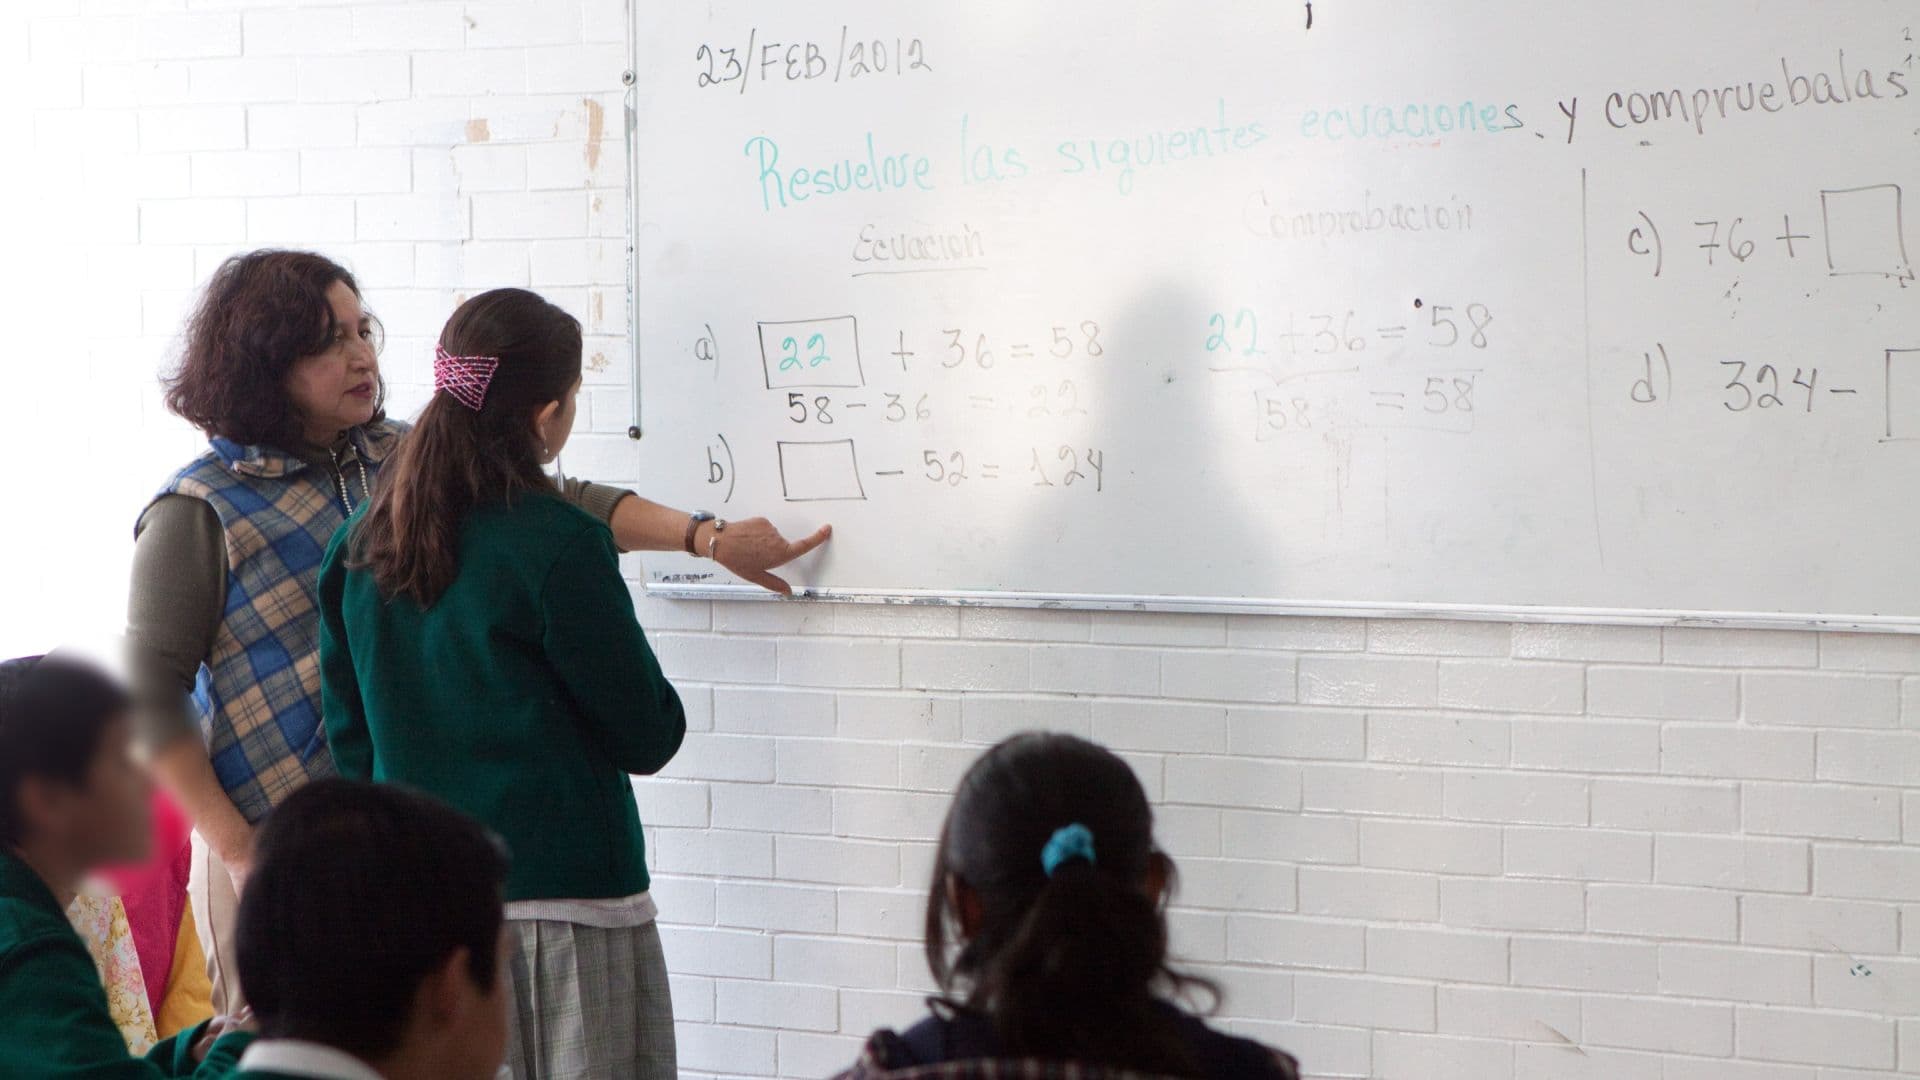 23/FEB/2012
Resuelve las siguientes ecuaciones. y compruebalas
Ecuación
Comprobación
a) 22 + 36 = 58
22 + 36 = 58
58 - 36 = 22
58 = 58
b) - 52 = 124
c) 76 +
d) 324 -